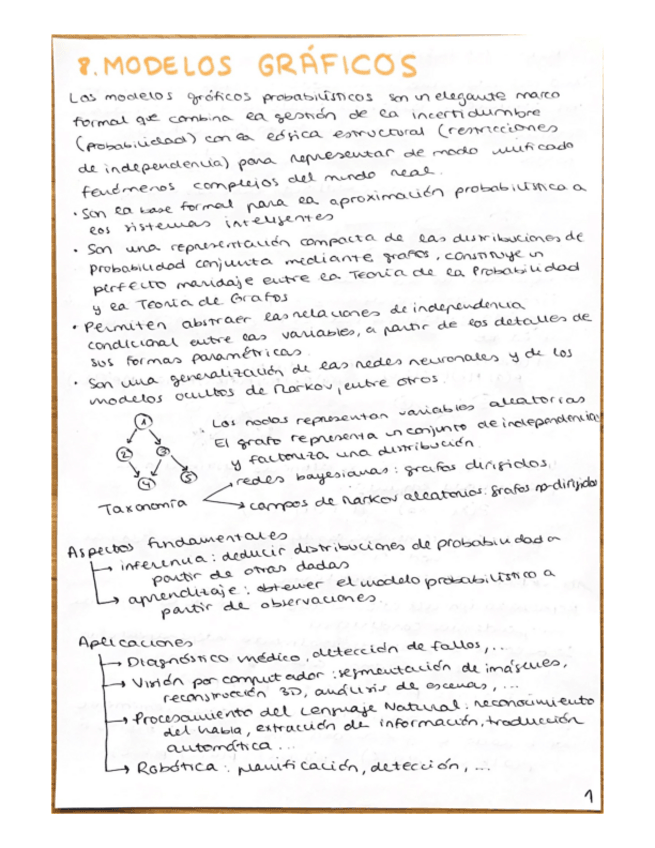 8. MODELOS GRÁFICOS
Los modelos gráficos probabilísticos son un elegante marco
formal que combina la gestión de la incertidumbre
(probabilidad) con la lógica estructural (restricciones
de independencia) para representar de modo unificado
fenómenos complejos del mundo real.
· Son la base formal para la aproximación probabilística a
los sistemas inteligentes
· Son una representación compacta de las distribuciones de
probabilidad conjunta mediante grafos, constituye un
perfecto maridaje entre la Teoría de la Probabilidad
y la Teoría de Grafos
· Permiten abstraer las relaciones de independencia
condicional entre las variables, a partir de los detalles de
sus formas paramétricas.
· Son una generalización de las redes neuronales y de los
modelos ocultos de Markov, entre otros.
1
2 3
4 5
. Los nodos representan variables aleatorias
El grafo representa un conjunto de independencias
y factoriza una distribución.
Taxonomía
→ redes bayesianas: grafos dirigidos.
→ campos de Markov aleatorios: grafos no-dirigidos
Aspectos fundamentales
→ inferencia: deducir distribuciones de probabilidad a
partir de otras dadas
→ aprendizaje: obtener el modelo probabilístico a
partir de observaciones.
Aplicaciones
→ Diagnóstico médico, detección de fallos, ...
→ Visión por computador: segmentación de imágenes,
reconstrucción 3D, análisis de escenas, ...
→ Procesamiento del Lenguaje Natural: reconocimiento
del habla, extracción de información, traducción
automática ...
→ Robótica: planificación, detección, ...
1